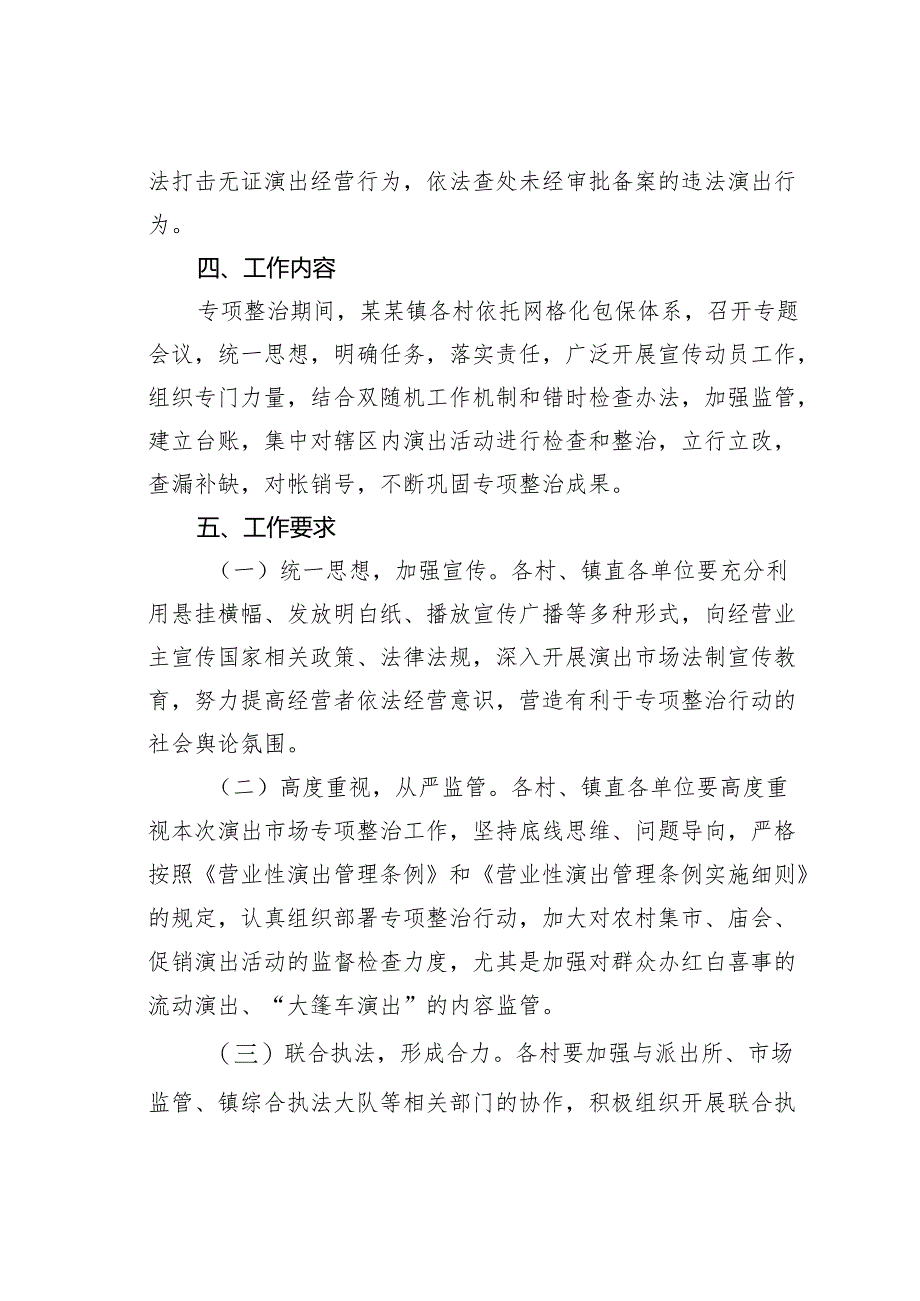 法打击无证演出经营行为，依法查处未经审批备案的违法演出行
为。
四、工作内容
专项整治期间，某某镇各村依托网格化包保体系，召开专题
会议，统一思想，明确任务，落实责任，广泛开展宣传动员工作，
组织专门力量，结合双随机工作机制和错时检查办法，加强监管，
建立台账，集中对辖区内演出活动进行检查和整治，立行立改，
查漏补缺，对帐销号，不断巩固专项整治成果。
五、工作要求
（一）统一思想，加强宣传。各村、镇直各单位要充分利
用悬挂横幅、发放明白纸、播放宣传广播等多种形式，向经营业
主宣传国家相关政策、法律法规，深入开展演出市场法制宣传教
育，努力提高经营者依法经营意识，营造有利于专项整治行动的
社会舆论氛围。
（二）高度重视，从严监管。各村、镇直各单位要高度重
视本次演出市场专项整治工作，坚持底线思维、问题导向，严格
按照《营业性演出管理条例》和《营业性演出管理条例实施细则》
的规定，认真组织部署专项整治行动，加大对农村集市、庙会、
促销演出活动的监督检查力度，尤其是加强对群众办红白喜事的
流动演出、“大篷车演出”的内容监管。
（三）联合执法，形成合力。各村要加强与派出所、市场
监管、镇综合执法大队等相关部门的协作，积极组织开展联合执